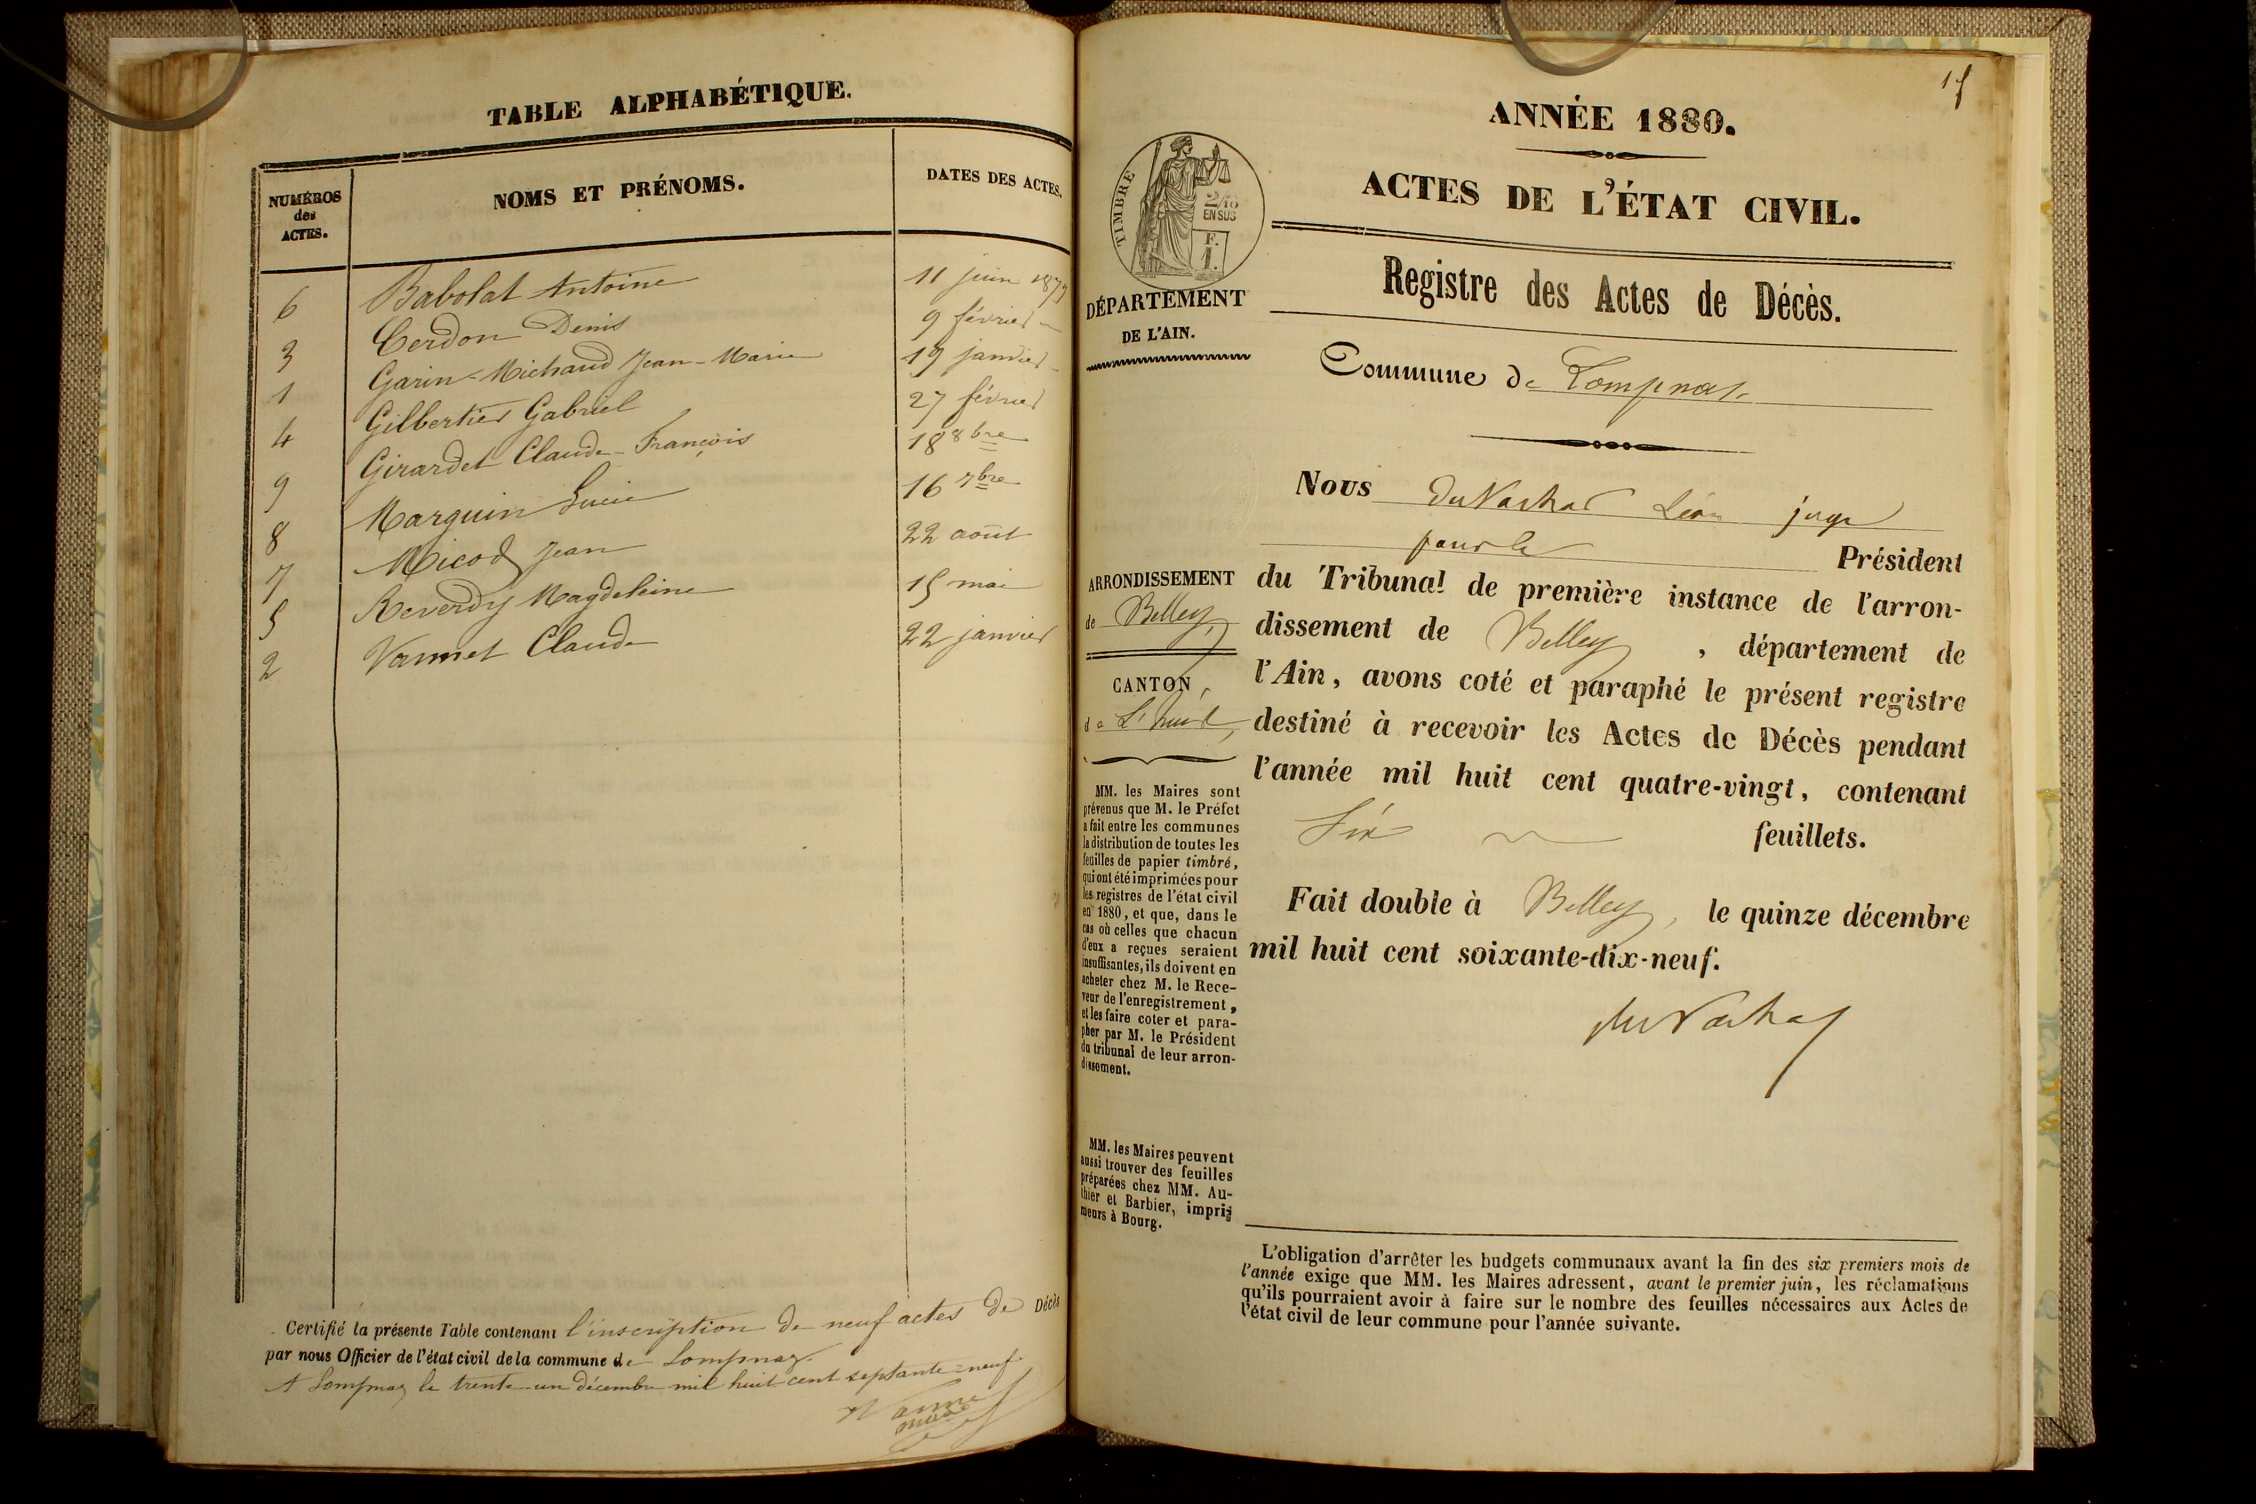 TABLE ALPHABÉTIQUE.
NUMÉROS des ACTES.
NOMS ET PRÉNOMS.
DATES DES ACTES.
6 Babolat Antoine 11 juin 1879
3 Cerdon Denis 9 février
1 Garin-Michaud Jean-Marie 19 janvier
4 Gilbertier Gabriel 27 février
9 Girardet Claude-François 18 8bre
8 Marguin Lucie 16 7bre
7 Micod Jean 22 août
5 Reverdy Magdeleine 15 mai
2 Vannet Claude 22 janvier
Certifié la présente Table contenant l'inscription de neuf actes de Décès
par nous Officier de l'état civil de la commune de Lompnaz.
A Lompnaz le trente-un décembre mil huit cent septante-neuf.
ANNÉE 1880.
ACTES DE L'ÉTAT CIVIL.
TIMBRE
2/10
EN SUS
F.
1.
DÉPARTEMENT
DE L'AIN.
Registre des Actes de Décès.
Commune de Lompnas
ARRONDISSEMENT
de Belley
CANTON
de L'huis
MM. les Maires sont
prévenus que M. le Préfet
a fait entre les communes
la distribution de toutes les
feuilles de papier timbré,
qui ont été imprimées pour
les registres de l'état civil
en 1880, et que, dans le
cas où celles que chacun
d'eux a reçues seraient
insuffisantes, ils doivent en
acheter chez M. le Rece-
veur de l'enregistrement,
et les faire coter et para-
pher par M. le Président
du tribunal de leur arron-
dissement.
MM. les Maires peuvent
aussi trouver des feuilles
préparées chez MM. Au-
thier et Barbier, impri-
meurs à Bourg.
Nous Léon juge
pour le Président
du Tribunal de première instance de l'arron-
dissement de Belley, département de
l'Ain, avons coté et paraphé le présent registre
destiné à recevoir les Actes de Décès pendant
l'année mil huit cent quatre-vingt, contenant
Six feuillets.
Fait double à Belley, le quinze décembre
mil huit cent soixante-dix-neuf.
L'obligation d'arrêter les budgets communaux avant la fin des six premiers mois de
l'année exige que MM. les Maires adressent, avant le premier juin, les réclamations
qu'ils pourraient avoir à faire sur le nombre des feuilles nécessaires aux Actes de
l'état civil de leur commune pour l'année suivante.